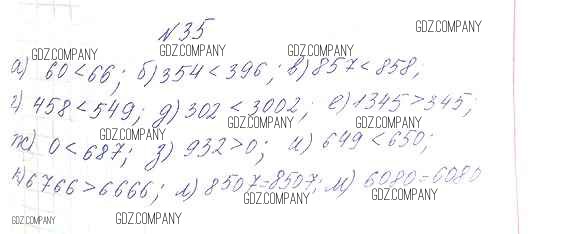 №35
а) 60 < 66; б) 354 < 396; в) 857 < 858;
г) 458 < 549; д) 302 < 3002; е) 1345 > 345;
ж) 0 < 687; з) 932 > 0; и) 649 < 650;
к) 6766 > 6666; л) 8507 = 8507; м) 6080 = 6080
GDZ.COMPANY
GDZ.COMPANY
GDZ.COMPANY
GDZ.COMPANY
GDZ.COMPANY
GDZ.COMPANY
GDZ.COMPANY
GDZ.COMPANY
GDZ.COMPANY
GDZ.COMPANY
GDZ.COMPANY